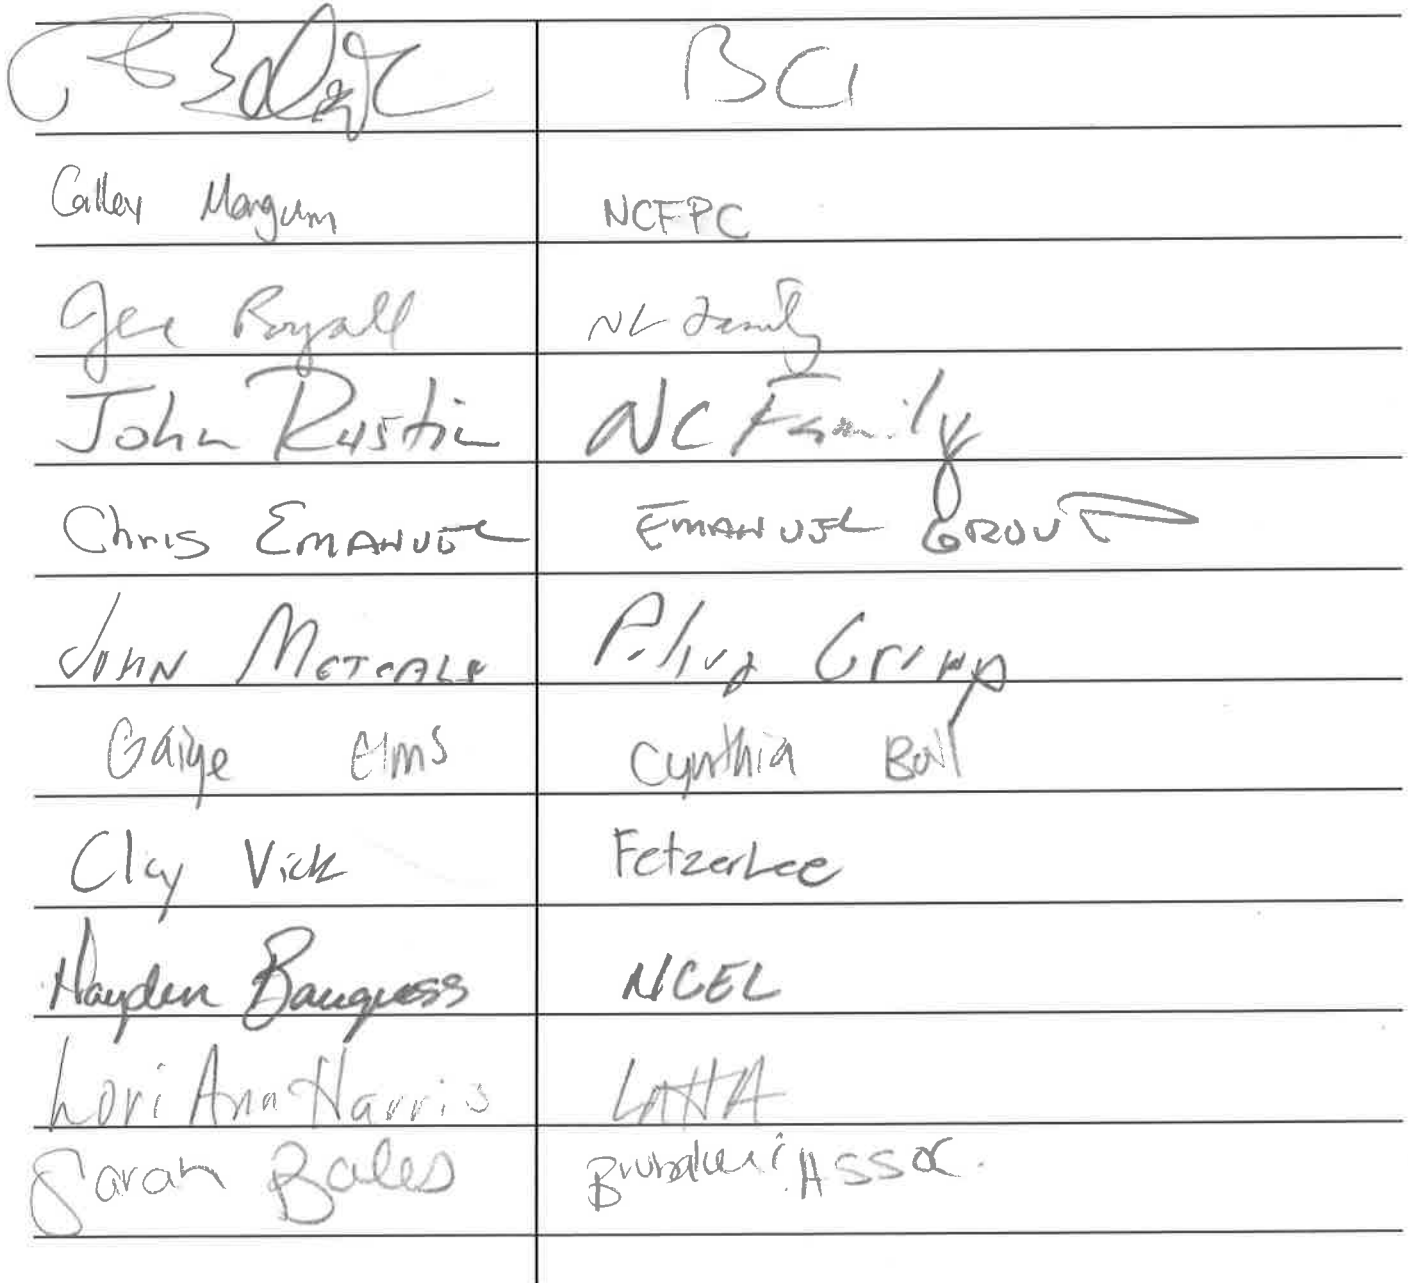 BCI
Calley Mangum NCFPC
Gene Royall NC Family
John Rustin NC Family
Chris EMANUEL EMANUEL GROUP
JOHN METCALF Group
Gaige Elms Cynthia Ball
Clay Vick FetzerLee
Hayden Bauguess NCEL
Lori Ann Harris LAHA
Sarah Bales Brubaker : Assoc.